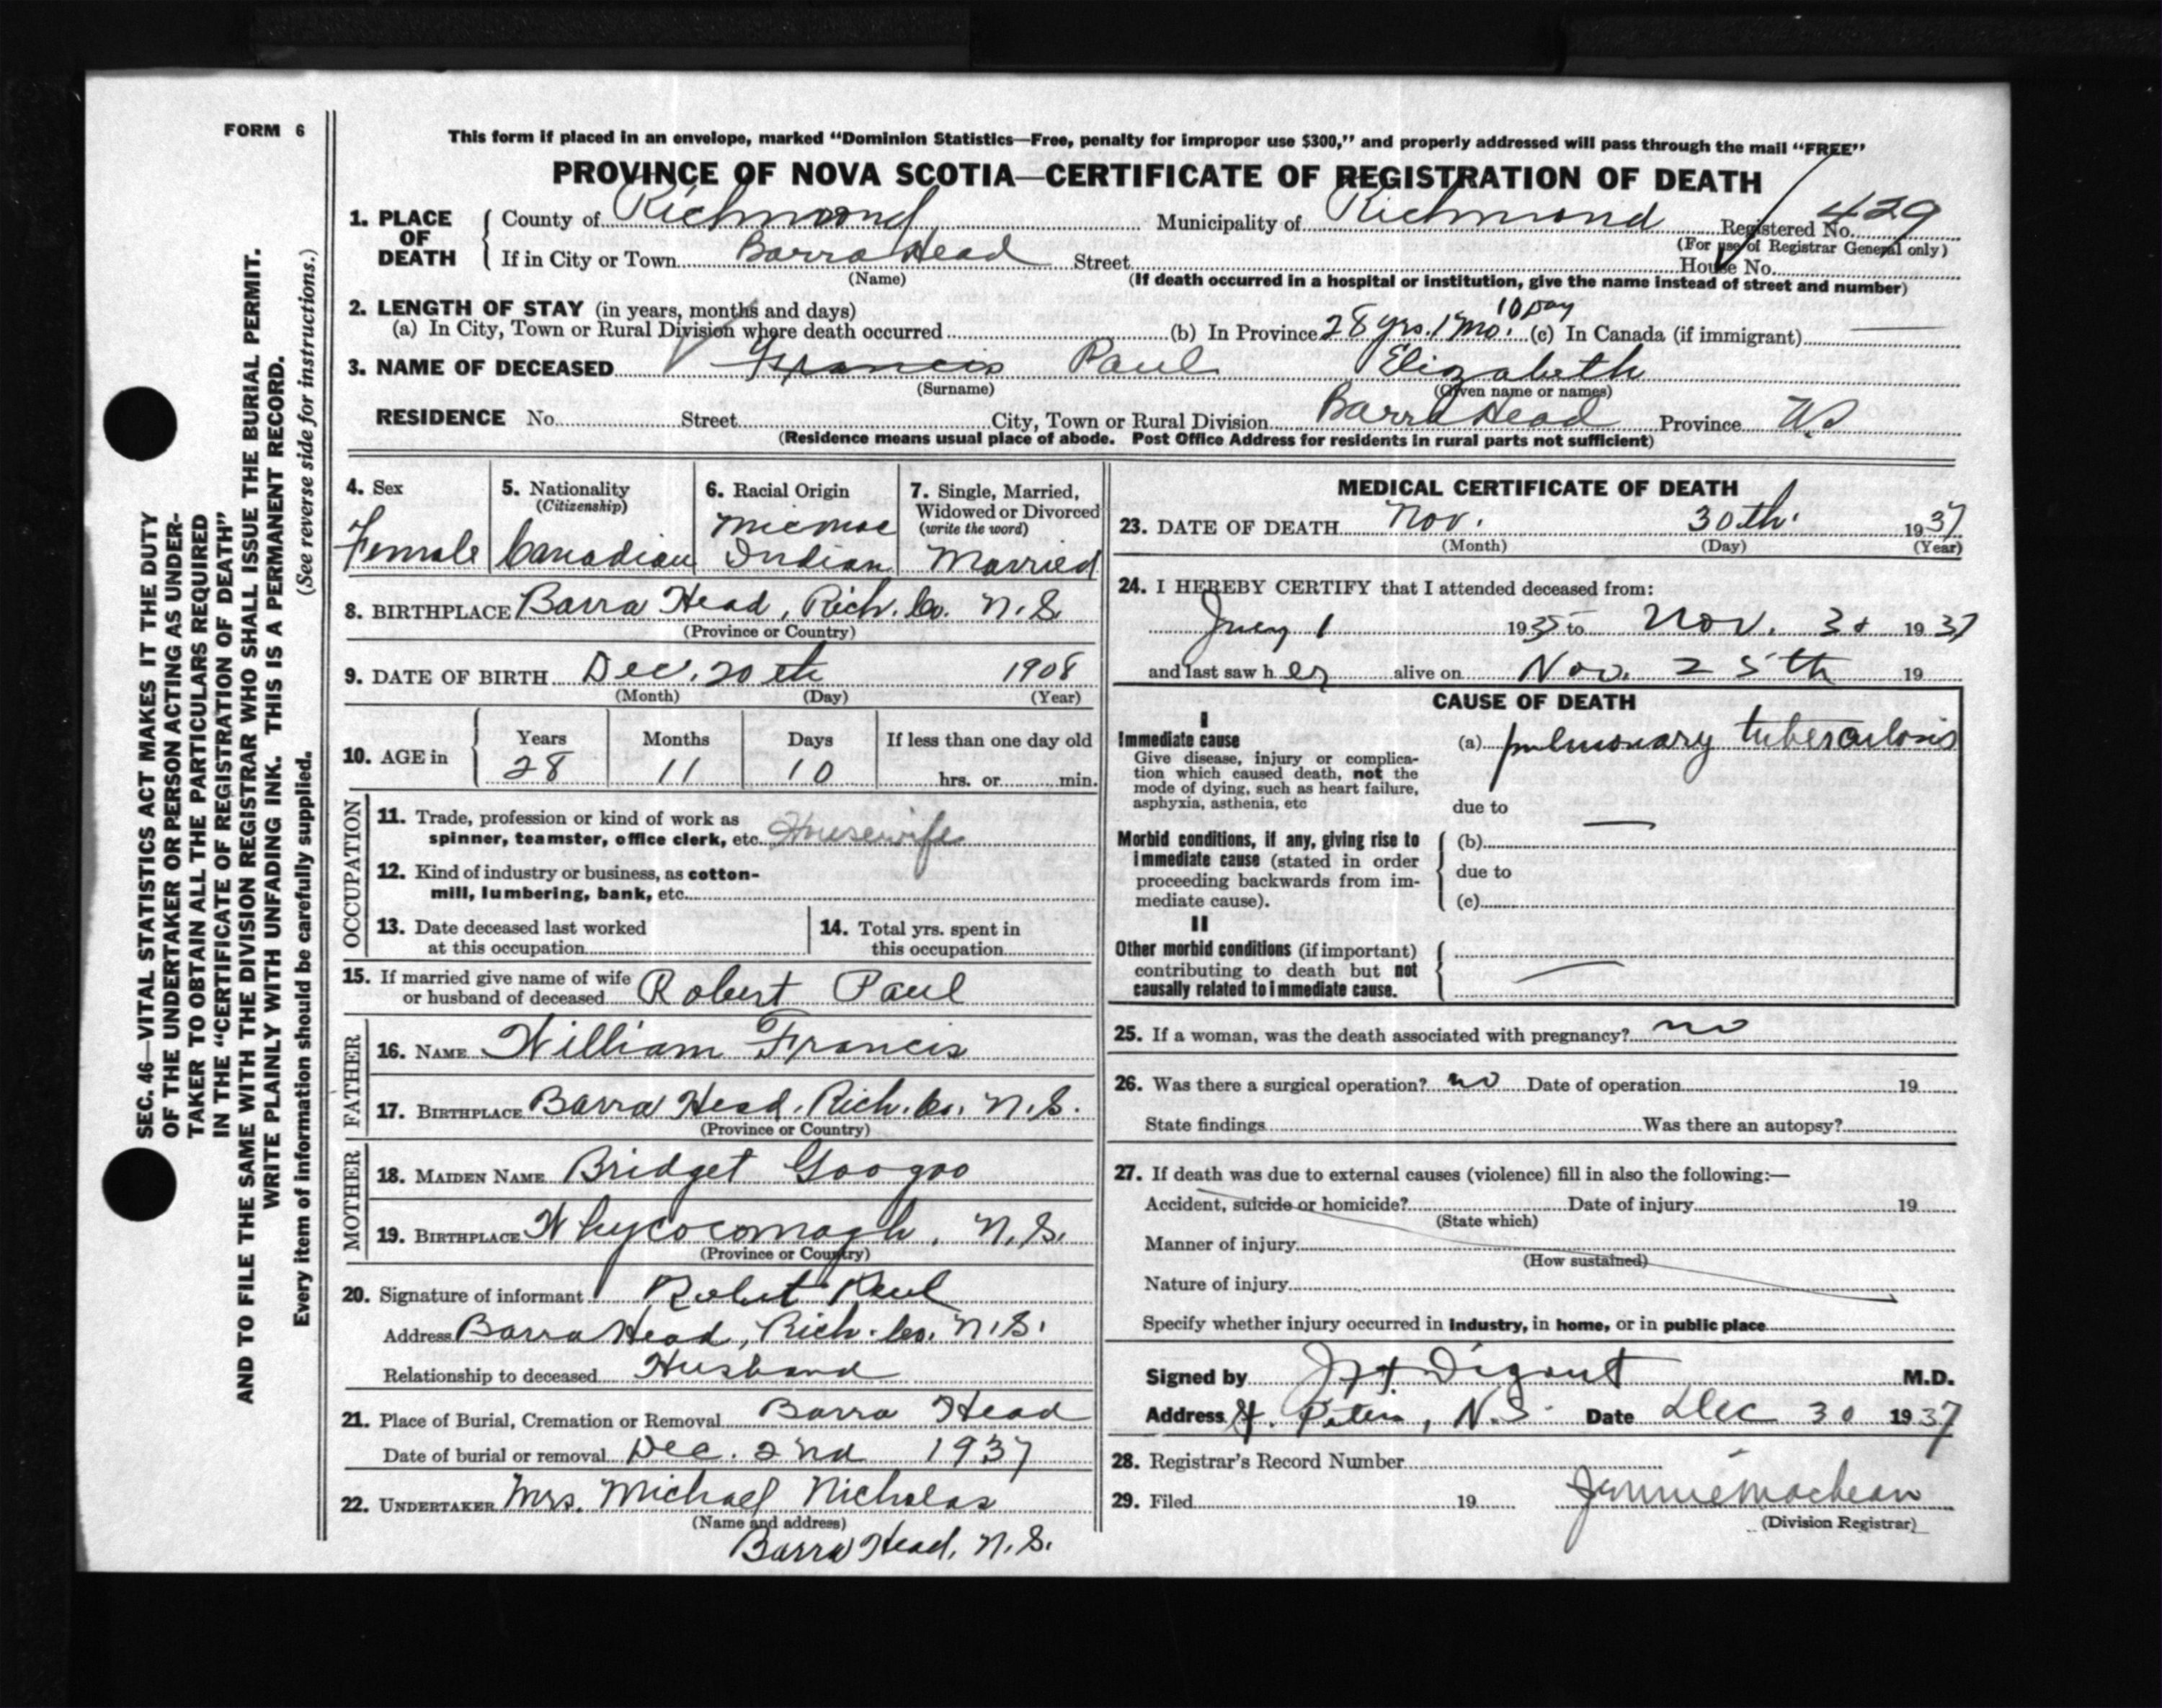 FORM 6
This form if placed in an envelope, marked "Dominion Statistics—Free, penalty for improper use $300," and properly addressed will pass through the mail "FREE"
PROVINCE OF NOVA SCOTIA—CERTIFICATE OF REGISTRATION OF DEATH
1. PLACE OF DEATH
County of Richmond Municipality of Richmond Registered No. 429
(For use of Registrar General only)
If in City or Town Barra Head Street House No.
(Name) (If death occurred in a hospital or institution, give the name instead of street and number)
2. LENGTH OF STAY (in years, months and days)
(a) In City, Town or Rural Division where death occurred (b) In Province 28 yrs. 1 Mo. 10 Day (c) In Canada (if immigrant) —
3. NAME OF DECEASED Francis Paul Elizabeth
(Surname) (Given name or names)
RESIDENCE No. Street City, Town or Rural Division Barra Head Province N.S
(Residence means usual place of abode. Post Office Address for residents in rural parts not sufficient)
4. Sex
Female
5. Nationality
(Citizenship)
Canadian
6. Racial Origin
Micmac
Indian
7. Single, Married,
Widowed or Divorced
(write the word)
Married
8. BIRTHPLACE Barra Head, Rich. Co. N.S.
(Province or Country)
9. DATE OF BIRTH Dec. 20th 1908
(Month) (Day) (Year)
10. AGE in
Years Months Days If less than one day old
28 11 10 hrs. or min.
OCCUPATION
11. Trade, profession or kind of work as
spinner, teamster, office clerk, etc. Housewife
12. Kind of industry or business, as cotton-
mill, lumbering, bank, etc.
13. Date deceased last worked
at this occupation
14. Total yrs. spent in
this occupation
15. If married give name of wife
or husband of deceased Robert Paul
FATHER
16. NAME William Francis
17. BIRTHPLACE Barra Head, Rich. Co. N.S.
(Province or Country)
MOTHER
18. MAIDEN NAME Bridget Googoo
19. BIRTHPLACE Whycocomagh, N.S.
(Province or Country)
20. Signature of informant Robert Paul
Address Barra Head, Rich. Co. N.S.
Relationship to deceased Husband
21. Place of Burial, Cremation or Removal Barra Head
Date of burial or removal Dec. 2nd 1937
22. UNDERTAKER Mrs. Michael Nicholas
(Name and address)
Barra Head, N.S.
MEDICAL CERTIFICATE OF DEATH
23. DATE OF DEATH Nov. 30th. 1937
(Month) (Day) (Year)
24. I HEREBY CERTIFY that I attended deceased from:
1 1935 to Nov. 30 1937
and last saw her alive on Nov. 25th 19
CAUSE OF DEATH
I
Immediate cause
Give disease, injury or complica-
tion which caused death, not the
mode of dying, such as heart failure,
asphyxia, asthenia, etc
(a) pulmonary tuberculosis
due to —
Morbid conditions, if any, giving rise to
immediate cause (stated in order
proceeding backwards from im-
mediate cause).
(b)
due to
(c)
II
Other morbid conditions (if important)
contributing to death but not
causally related to immediate cause.
25. If a woman, was the death associated with pregnancy? no
26. Was there a surgical operation? no Date of operation 19
State findings Was there an autopsy?
27. If death was due to external causes (violence) fill in also the following:—
Accident, suicide or homicide? Date of injury 19
(State which)
Manner of injury
(How sustained)
Nature of injury
Specify whether injury occurred in industry, in home, or in public place
Signed by Digout M.D.
Address St. Peters, N.S. Date Dec 30 1937
28. Registrar's Record Number
29. Filed 19 Jennie MacLean
(Division Registrar)
SEC. 46—VITAL STATISTICS ACT MAKES IT THE DUTY
OF THE UNDERTAKER OR PERSON ACTING AS UNDER-
TAKER TO OBTAIN ALL THE PARTICULARS REQUIRED
IN THE "CERTIFICATE OF REGISTRATION OF DEATH"
AND TO FILE THE SAME WITH THE DIVISION REGISTRAR WHO SHALL ISSUE THE BURIAL PERMIT.
WRITE PLAINLY WITH UNFADING INK. THIS IS A PERMANENT RECORD.
Every item of information should be carefully supplied. (See reverse side for instructions.)